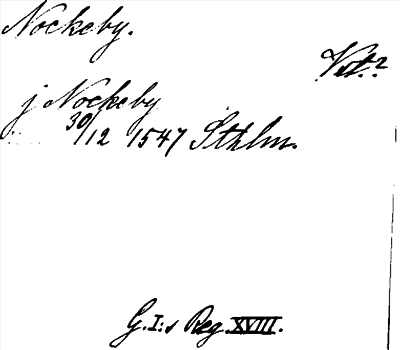 Nockeby.
Vst.?
j Nockeby
30/12 1547 Sthlm.
G.I:s Reg. XVIII.